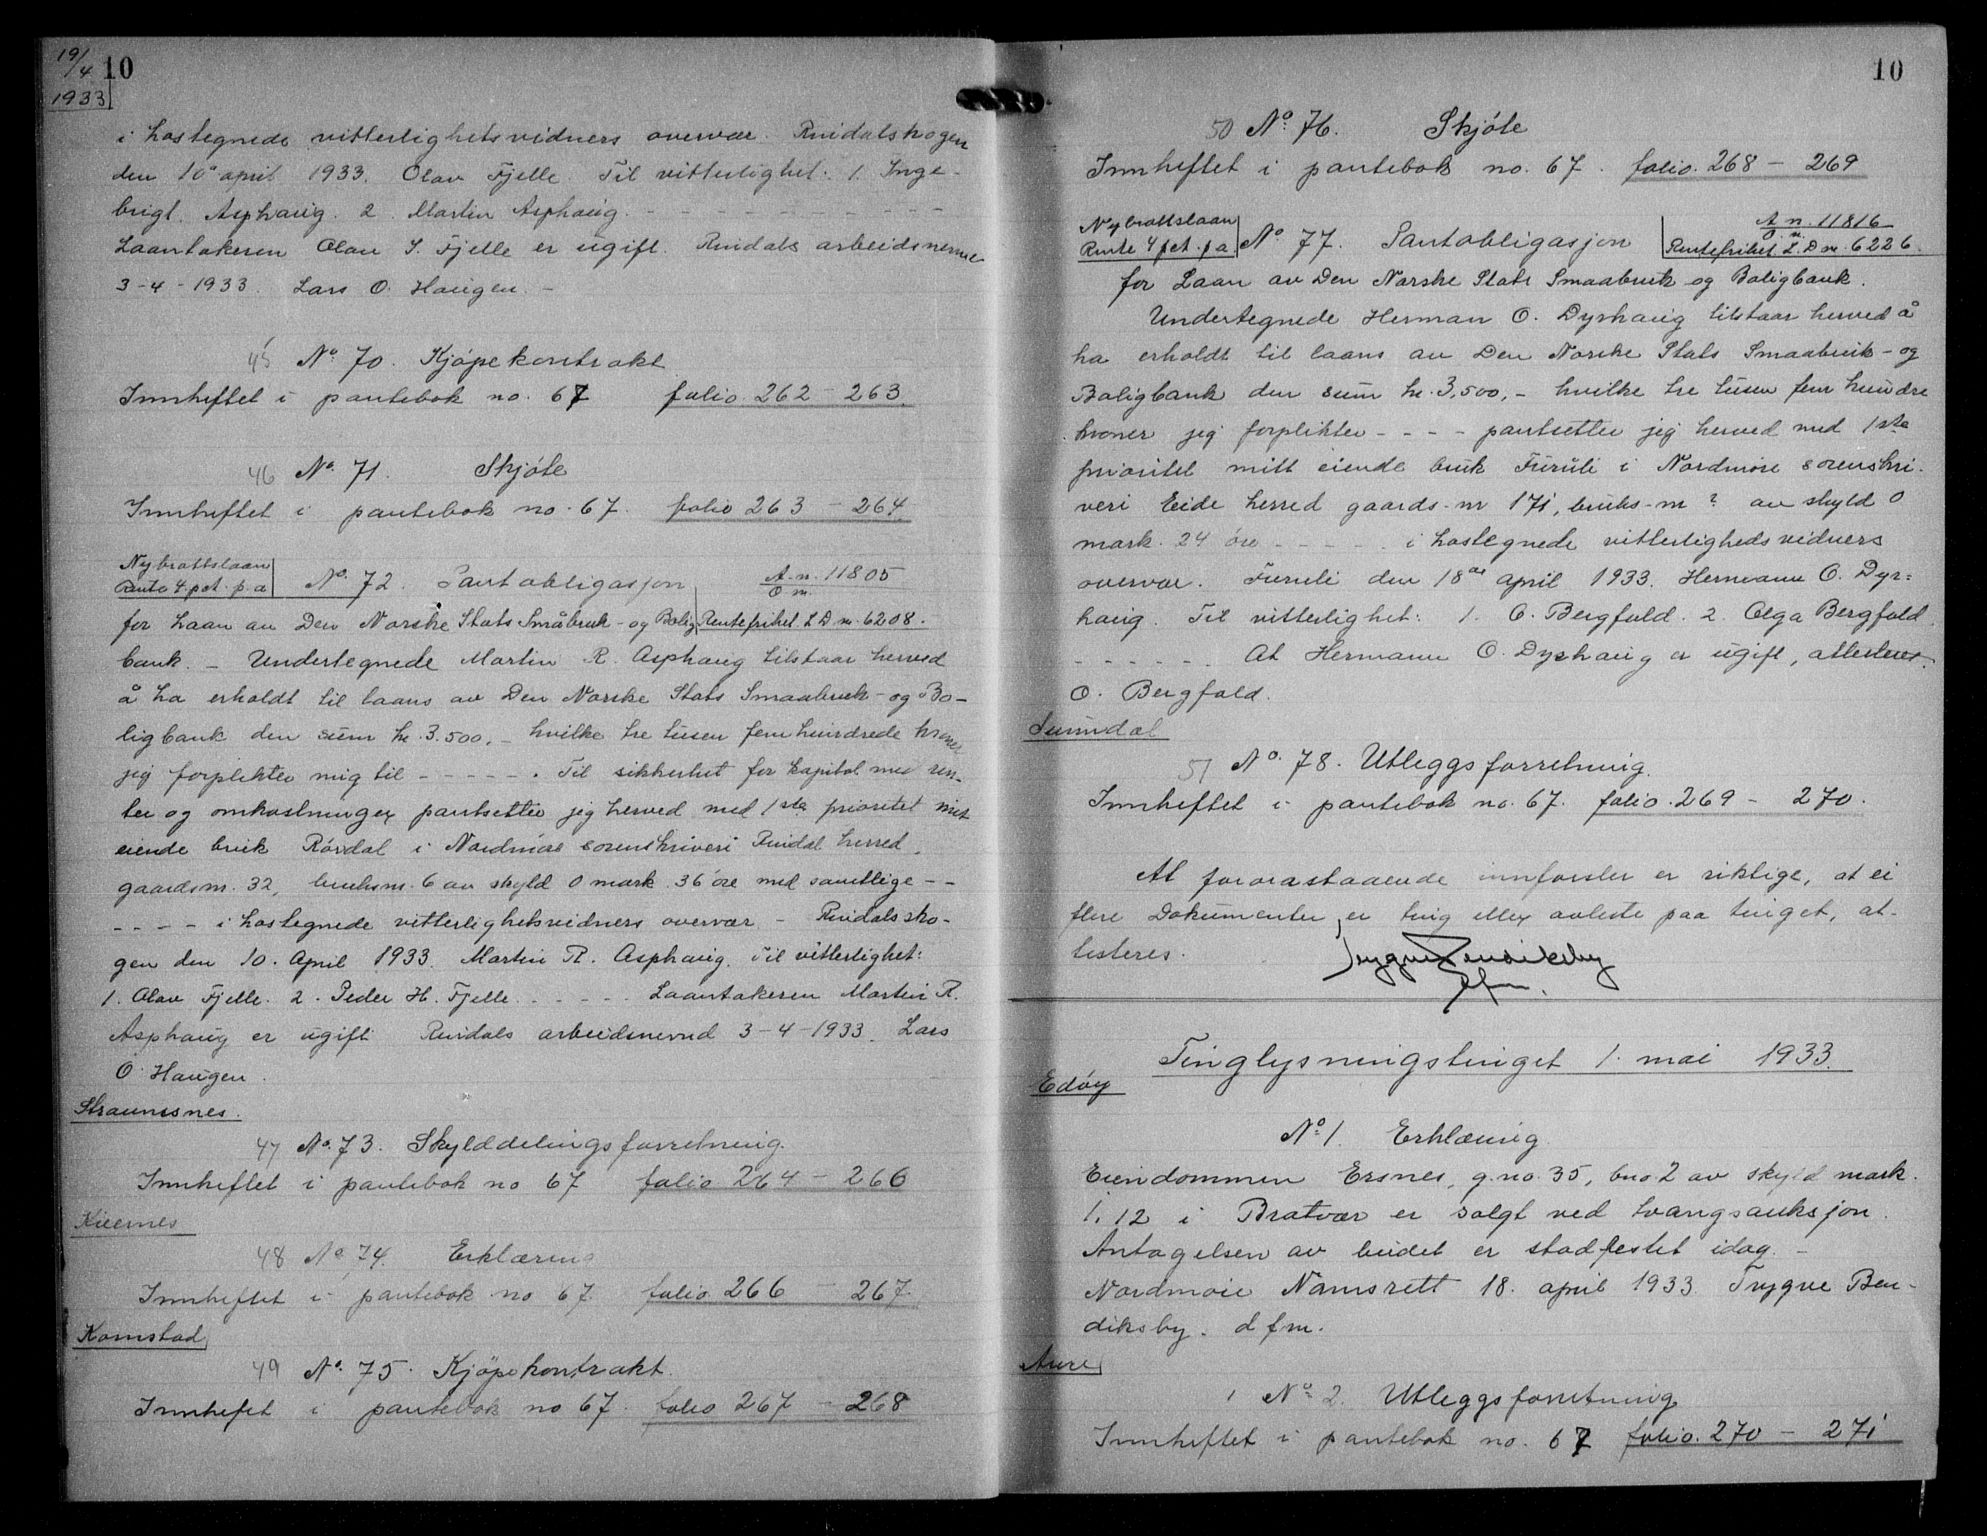 19/4 10
1933
i hostegnede vitterlighetsvidners overvær. Rindalskogen
den 10de april 1933. Olav Fjelle. Til vitterlighet: 1. Inge-
brigt Asphaug. 2. Martin Asphaug. - - - - - - - - -
Laantakeren Olav I. Fjelle er ugift. Rindals arbeidsnevnd
3-4-1933. Lars O. Haugen. -
45 No. 70. Kjøpekontrakt
Innheftet i pantebok no. 67 folio. 262 - 263.
46 No. 71. Skjøte
Innheftet i pantebok no. 67. folio 263 - 264.
Nybrottslaan
Rente 4 pct. p.a No. 72. Pantobligasjon A.n. 11805
O.n.
for Laan av Den Norske Stats Småbruk- og Bolig Rentefrihet L D nr. 6208.
bank. - Undertegnede Martin R. Asphaug tilstaar herved
å ha erholdt til laans av Den Norske Stats Smaabruk- og Bo-
ligbank den sum kr. 3.500,- hvilke tre tusen femhundrede kroner
jeg forplikter mig til - - - - - . Til sikkerhet for kapital med ren-
ter og omkostninger pantsetter jeg herved med 1ste prioritet mitt
eiende bruk Rørdal i Nordmøre sorenskriveri Rindal herred,
gaardsnr. 32, bruksnr. 6 av skyld 0 mark 36 øre med samtlige - -
- - - - i hostegnede vitterlighetsvidners overvær - Rindalssko-
gen den 10. April 1933. Martin R. Asphaug. Til vitterlighet:
1. Olav Fjelle. 2. Peder H. Fjelle. - - - - - Laantakeren Martin R.
Asphaug er ugift Rindals arbeidsnevnd 3-4-1933. Lars
O. Haugen.
Straumsnes.
47 No. 73. Skylddelingsforretning.
Innheftet i pantebok no 67 folio 264 - 266
Kvernes
48 No. 74. Erklæring
Innheftet i pantebok no 67. folio 266 - 267.
Kornstad
49 No. 75. Kjøpekontrakt.
Innheftet i pantebok no 67. folio 267 - 268
10
50 No. 76. Skjøte
Innheftet i pantebok no. 67. folio. 268 - 269
Nybrottslaan
Rente 4 pct. p.a No. 77. Pantobligasjon A.n. 11816
O.n.
Rentefrihet L.D nr. 6226.
for Laan av Den Norske Stats Smaabruk og Boligbank.
Undertegnede Herman O. Dyrhaug tilstaar herved å
ha erholdt til laans av Den Norske Stats Smaabruk- og
Boligbank den sum kr. 3,500,- hvilke tre tusen fem hundre
kroner jeg forplikter - - - - pantsetter jeg herved med 1ste
prioritet mitt eiende bruk Furuli i Nordmøre sorenskri-
veri Eide herred gaards-nr 171, bruks-nr ? av skyld 0
mark. 24 øre - - - - - i hostegnede vitterligheds vidners
overvær. Furuli den 18de april 1933. Hermann O. Dyr=
haug. Til vitterlighet: 1. O. Bergfald. 2. Olga Bergfald.
- - - - - - At Hermann O. Dyrhaug er ugift, attesteres.
O. Bergfald.
Sunndal
51 No. 78. Utleggsforretning.
Innheftet i pantebok no. 67. folio. 269 - 270.
At foranstaaende innførsler er riktige, at ei
flere Dokumenter er ting eller avleste paa tinget, at-
testeres.
Trygve Bendiksby
dfm.
Tinglysningstinget 1. mai 1933.
Edøy
No. 1. Erklæring
Eiendommen Ersnes, g.no. 35, bno 2 av skyld mark.
1.12 i Bratvær er solgt ved tvangsauksjon.
Antagelsen av budet er stadfestet idag. -
Nordmøre Namsrett 18. april 1933. Trygve Ben-
diksby. dfm.
Aure
1 No. 2. Utleggsforretning
Innheftet i pantebok no. 67 folio. 270 - 271